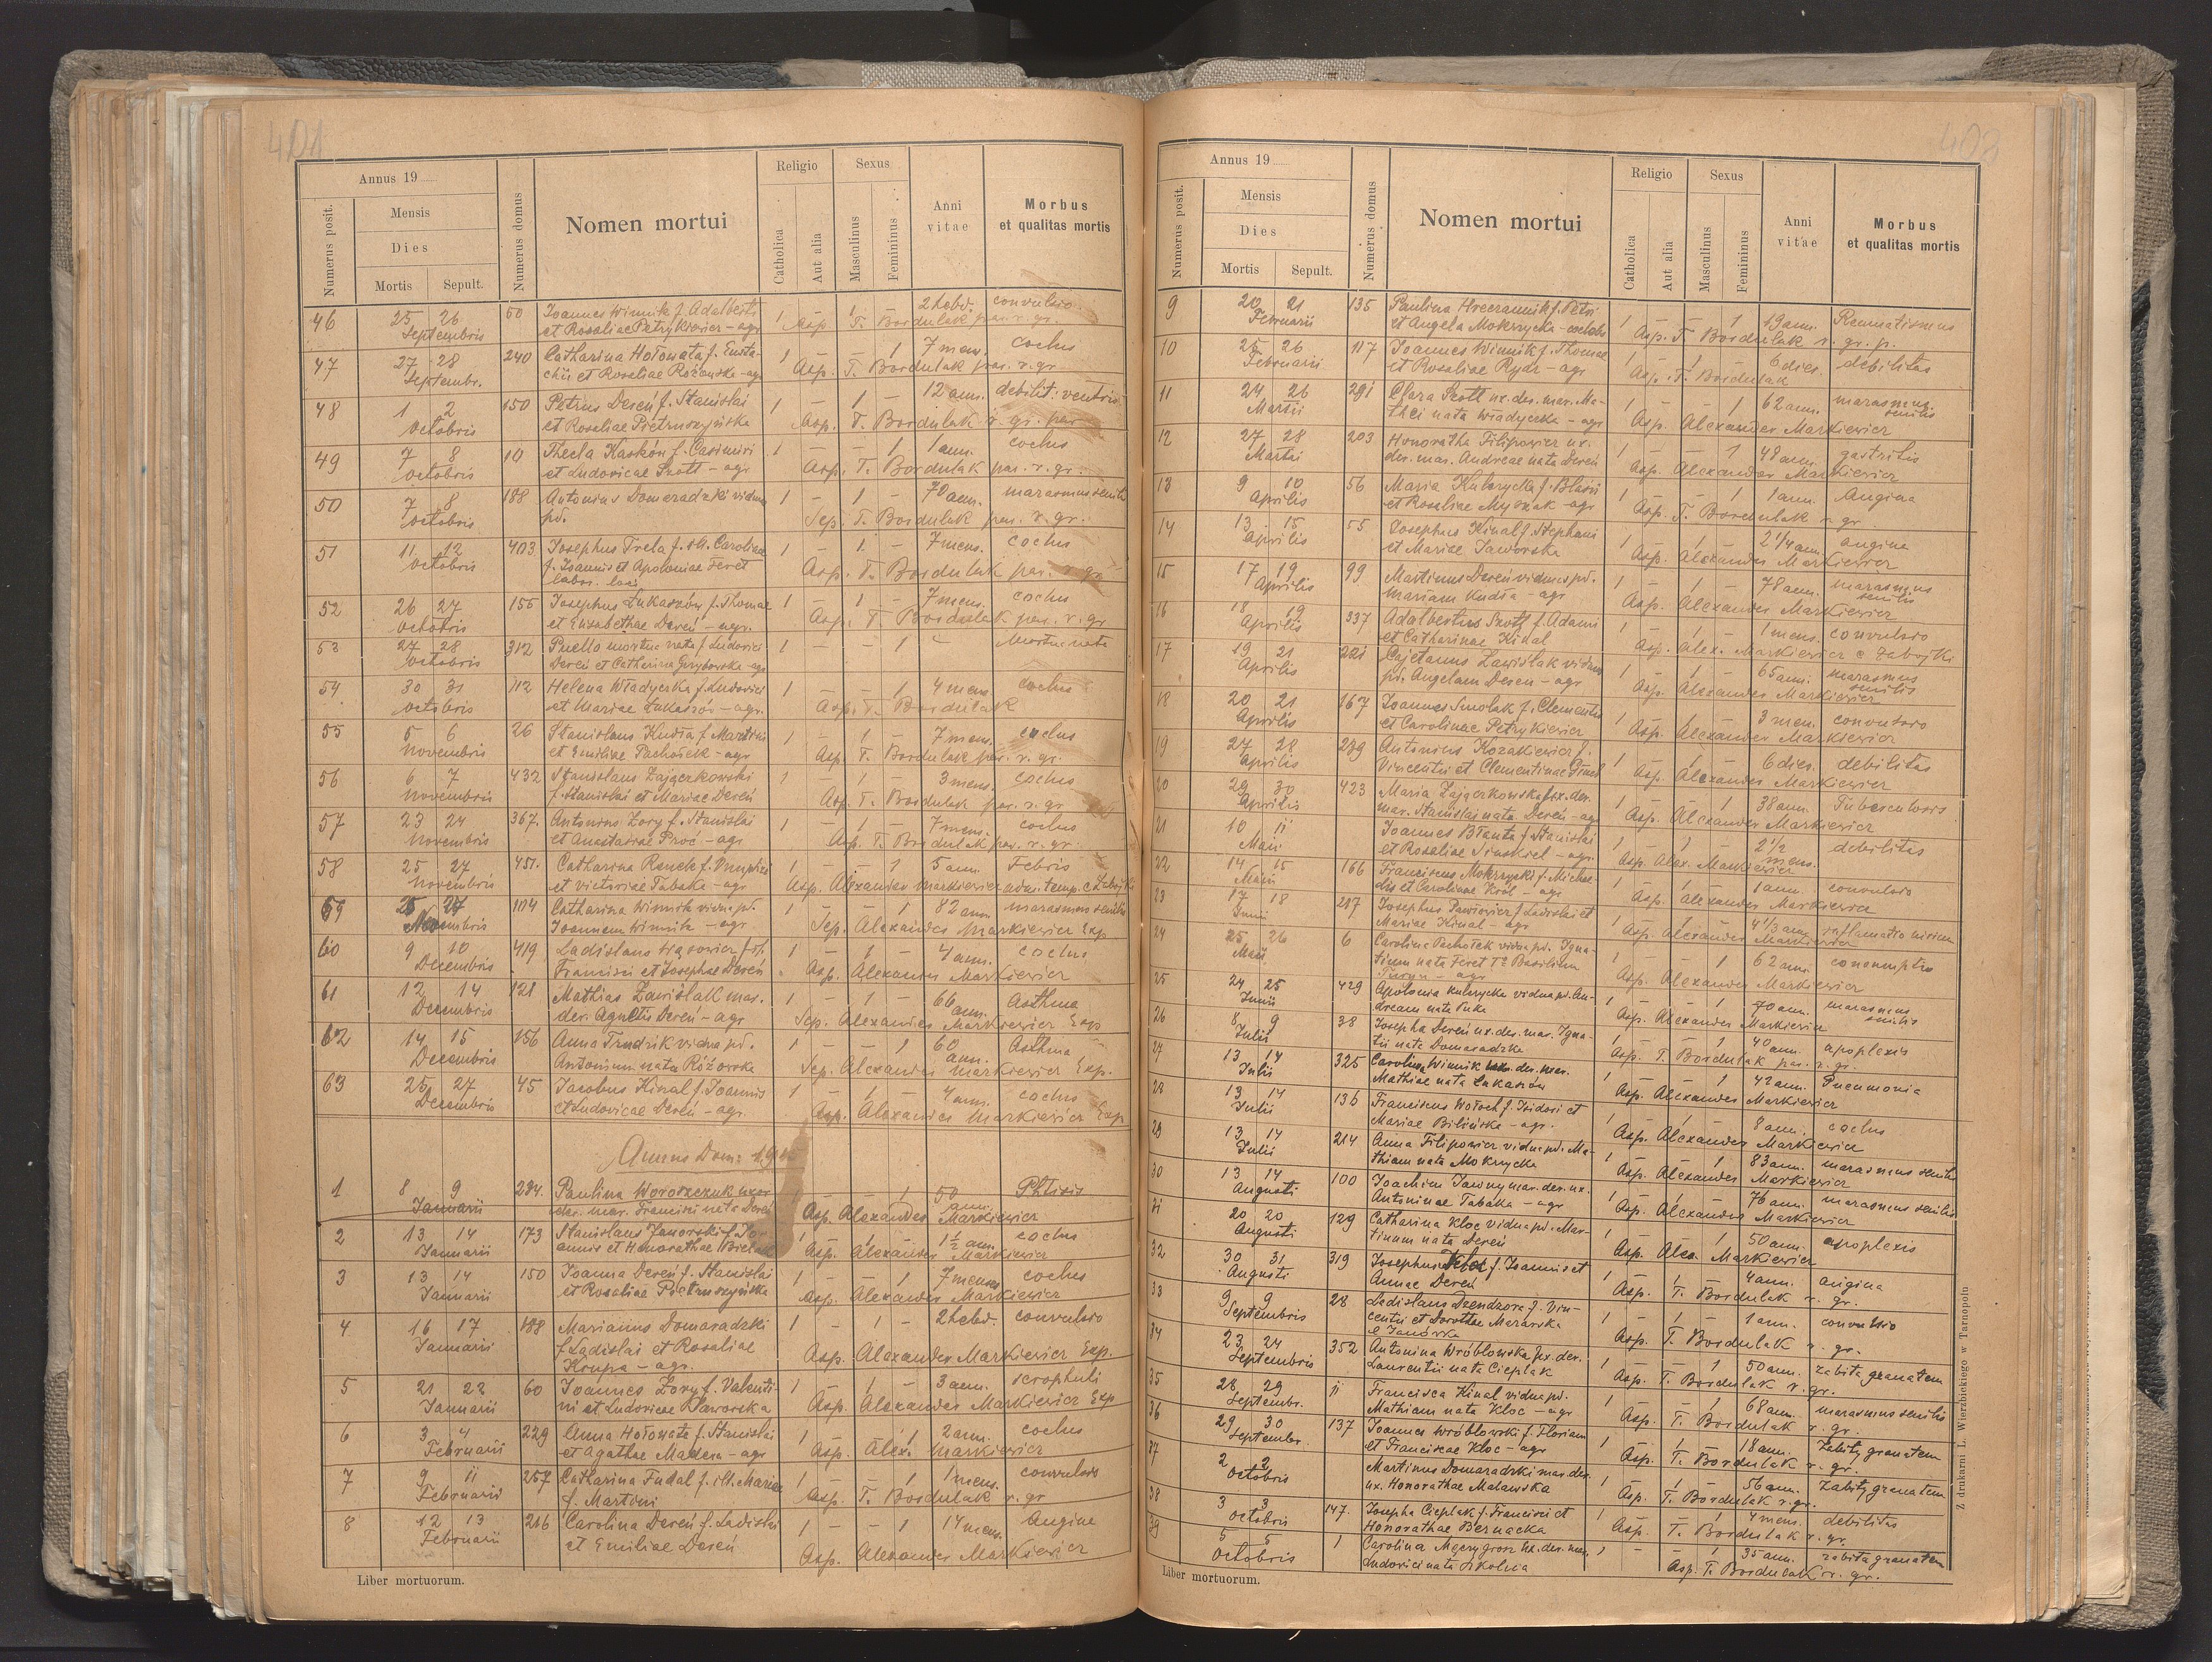 401
Annus 19
Religio
Sexus
Numerus posit.
Mensis
Dies
Mortis
Sepult.
Numerus domus
Nomen mortui
Catholica
Aut alia
Masculinus
Femininus
Anni vitae
Morbus et qualitas mortis
46 25 26 60 Joannes Winnik f. Adalberti 1 1 – 2 hebd. convulsio
Septembris et Rosaliae Petrykiewicz – agr Asp. T. Bordulak par. r. gr.
47 27 28 240 Catharina Hołowata f. Eusta- 1 – – 1 7 mens. coclus
Septembr. chii et Rosaliae Różańska – agr Asp. T. Bordulak par. r. gr
48 1 2 150 Petrus Dereń f. Stanislai 1 – 1 – 12 ann. debilit: ventris
Octobris et Rosaliae Pietruszyńska Asp. T. Bordulak r. gr. par
49 7 8 10 Thecla Kaskón f. Casimiri 1 – – 1 1 ann. coclus
Octobris et Ludovicae Szott – agr Asp. T. Bordulak par. r. gr.
50 7 8 188 Antonius Domaradzki viduus 1 – 1 – 70 ann. marasmus senilis
Octobris pd. Sep. T. Bordulak par. r. gr.
51 11 12 403 Josephus Trela f. ill. Carolinae 1 – 1 – 7 mens. coclus
Octobris f. Joannis et Apoloniae Feret Asp. T. Bordulak par. r. gr
labor. loci
52 26 27 155 Josephus Łukaszów f. Thomae 1 – 1 – 7 mens. coclus
Octobris et Elisabethae Dereń – agr. Asp. T. Bordulak par. r. gr
53 27 28 312 Puella mortua nata f. Ludovici 1 – – 1 – Mortua nata
Octobris Dereń et Catharina Grzybowska – agr
54 30 31 112 Helena Władyczka f. Ludovici 1 – – 1 4 mens. coclus
Octobris et Mariae Łukaszów – agr. Asp. T. Bordulak
55 5 6 26 Stanislaus Kudła f. Martini 1 – 1 – 7 mens. coclus
Novembris et Emiliae Pachołek – agr Asp. T. Bordulak par. r. gr.
56 6 7 432 Stanislaus Zajączkowski 1 – 1 – 3 mens. coclus
Novembris f. Stanislai et Mariae Dereń Asp. T. Bordulak par. r. gr
57 23 24 367. Antonius Zory f. Stanislai 1 – 1 – 7 mens. coclus
Novembris et Anastasiae Proć – agr Asp. T. Bordulak par. r. gr.
58 25 27 451. Catharina Renek f. 1 – – 1 5 ann. Febris
Novembris et Victoriae Tabaka – agr Asp. Alexander Markiewicz adm. temp. e Zabojki
59 25 27 104 Catharina Winnik vidua pd. 1 – – 1 82 ann. marasmus senilis
Novembris Joannem Winnik – agr Sep. Alexander Markiewicz Exp
60 9 10 419 Ladislaus Wąsowicz f. 1 – 1 – 4 ann. coclus
Decembris Francisci et Josephae Dereń Asp. Alexander Markiewicz
61 12 14 121 Mathias Zawiślak mar. 1 – 1 – 66 ann. Asthma
Decembris der. Agnetis Dereń – agr Sep. Alexander Markiewicz Exp
62 14 15 156 Anna Trudzik vidua pd. 1 – – 1 60 ann. Asthma
Decembris Antonium nata Różowska Sep. Alexander Markiewicz Exp.
63 25 27 45 Jacobus Kinal f. Joannis 1 – 1 – 4 ann. coclus
Decembris et Ludovicae Dereń – agr. Asp. Alexander Markiewicz Exp
Annus Dom: 1915
1 8 9 284. Paulina Woroszczuk uxor – – 1 50 ann. Phtisis
Januarii der. mar. Francisci nata Dereń Asp. Alexander Markiewicz
2 13 14 173 Stanislaus Janorski f. Jo- 1 – 1 – 1½ ann. coclus
Januarii annis et Honorathae Bielak Asp. Alexander Markiewicz
3 13 14 150 Joanna Dereń f. Stanislai 1 – – 1 7 menses coclus
Januarii et Rosaliae Pietruszyńska Asp. Alexander Markiewicz
4 16 17 188 Marianus Domaradzki 1 – 1 – 2 hebd. convulsio
Januarii f. Ladislai et Rosaliae Asp. Alexander Markiewicz Exp.
Krupa – agr.
5 21 22 60 Joannes Zory f. Valenti- 1 – 1 – 3 ann. scrophuli
Januarii ni et Ludovicae Raworska Asp. Alexander Markiewicz Exp
6 3 4 229 Anna Hołowata f. Stanislai 1 1 2 ann. coclus
Februarii et Agathae Madera – agr Asp. Alex. Markiewicz
7 9 11 257 Catharina Fudal f. ill. Mariae 1 – – 1 1 mens. convulsio
Februarii f. Martini Asp. T. Bordulak r. gr
8 12 13 216 Carolina Dereń f. Ladislai 1 – – 1 14 mens. Angine
Februarii et Emiliae Dereń Asp. Alexander Markiewicz
Liber mortuorum.
403
Annus 19
Religio
Sexus
Numerus posit.
Mensis
Dies
Mortis
Sepult.
Numerus domus
Nomen mortui
Catholica
Aut alia
Masculinus
Femininus
Anni vitae
Morbus et qualitas mortis
9 20 21 135 Paulina f. Petri 1 – – 1 19 ann. Reumatismus
Februarii et Angela Mokrzycka – coelebs Asp. T. Bordulak r. gr. p.
10 25 26 117 Joannes Winnik f. Thomae 1 – 1 – 6 dies. debilitas
Februarii et Rosaliae Rydz – agr Asp. T. Bordulak
11 24 26 291 Clara Szott ux. der. mar. Ma- 1 – – 1 62 ann. marasmus senilis
Martii thei nata Władyczka – agr Asp. Alexander Markiewicz
12 27 28 203 Honoratha Filipowicz ux. 1 – – 1 48 ann. gastritis
Martii der. mar. Andreae nata Dereń Asp. Alexander Markiewicz
13 9 10 56 Maria Kulczycka f. Blasii 1 – – 1 1 ann. Angina
Aprilis et Rosaliae Myszak – agr Asp. T. Bordulak r. gr
14 13 15 55 Josephus Kinal f. Stephani 1 – 1 – 2 1/4 ann. angine
Aprilis et Mariae Jaworska Asp. Alexander Markiewicz
15 17 19 99 Martinus Dereń viduus pd. 1 – 1 – 78 ann. marasmus senilis
Aprilis Mariam Kudła – agr Asp. Alexander Markiewicz
16 18 19 337 Adalbertus Szott f. Adami 1 – 1 – 1 mens. convulsio
Aprilis et Catharinae Kinal Asp. Alex. Markiewicz e Zabojki
17 19 21 221 Cajetanus Zawiślak viduus 1 1 65 ann. marasmus senilis
Aprilis pd. Angelam Dereń – agr Asp. Alexander Markiewicz
18 20 21 167 Joannes Smolak f. Clementis 1 1 3 men. convulsio
Aprilis et Carolinae Petrykiewicz Asp. Alexander Markiewicz
19 27 28 239 Antonius Kozakiewicz f. 1 1 6 dies. debilitas
Aprilis Vincentii et Clementinae Asp. Alexander Markiewicz
20 29 30 423 Maria Zajączkowska ux. der. 1 1 38 ann. Tuberculosis
Aprilis mar. Stanislai nata Dereń – agr Asp. Alexander Markiewicz
21 10 11 Joannes Błauta f. Stanislai 1 1 2 1/2 mens. debilitas
Maii et Rosaliae – agr. Asp. Alex. Markiewicz
22 14 15 166 Franciscus Mokrzycki f. Michae- 1 1 1 ann. convulsio
Maii lis et Carolinae Król – agr Asp. Alexander Markiewicz
23 17 18 217 Josephus Pawłowicz f. Ladislai et 1 1 4 1/3 ann. inflamatio
Junii Mariae Kinal – agr Asp. Alexander Markiewicz
24 25 26 6 Carolina Pachołek vidua pd. Igna- 1 – 1 62 ann. consumptio
Maii tium nata Feret Basilium Asp. Alexander Markiewicz
– agr
25 24 25 429 Apolonia Kulczycka vidua pd. An- 1 – 1 70 ann. marasmus senilis
Junii dream nata Puka Asp. Alexander Markiewicz
26 8 9 38 Josepha Dereń ux. der. mar. Igna- 1 – 1 40 ann. apoplexis
Julii tii nata Domaradzka Asp. T. Bordulak par. r. gr.
27 13 14 325 Carolina Winnik der. mar. 1 1 42 ann. Pneumonia
Julii Mathiae nata Łukaszów Asp. Alexander Markiewicz
28 13 14 136 Franciscus Wołoch f. Isidori et 1 1 8 ann. coclus
Julii Mariae Bilińska – agr. Asp. Alexander Markiewicz
29 13 14 214 Anna Filipowicz vidua pd. Ma- 1 1 83 ann. marasmus senilis
Julii thiam nata Mokrzycka Asp. Alexander Markiewicz
30 13 14 100 Joachim Jawny mar. der. ux. 1 1 76 ann. marasmus senilis
Augusti Antoninae Tabaka – agr Asp. Alexander Markiewicz
31 20 20 129 Catharina Kloc vidua pd. Mar- 1 1 50 ann. apoplexis
Augusti tinum nata Dereń Asp. Alex. Markiewicz
32 30 31 319 Josephus f. Joannis et 1 1 4 ann. angina
Augusti Annae Dereń Asp. T. Bordulak r. gr.
33 9 9 28 Ladislaus Dzendzora f. Vin- 1 1 – 1 ann. convulsio
Septembris centii et Dorothae Mazurska Asp. T. Bordulak r. gr.
e Janówka
34 23 24 352 Antonina Wróblowska ux. der. 1 1 50 ann. zabita granatem
Septembris Laurentii nata Cieplak Asp. T. Bordulak r. gr.
35 28 29 11 Francisca Kinal vidua pd. 1 – 1 68 ann. marasmus senilis
Septembr. Mathiam nata Kloc – agr Asp. T. Bordulak r. gr.
36 29 30 137 Joannes Wróblowski f. Floriani 1 1 18 ann. Zabity granatem
Septembr et Franciscae Kloc – agr Asp. T. Bordulak r. gr.
37 2 2 Martinus Domaradzki mar. der. 1 1 56 ann. Zabity granatem
Octobris ux. Honorathae Malawska Asp. T. Bordulak r. gr.
38 3 3 147. Josepha Cieplak f. Francisci et 1 – 1 4 mens. debilitas
Octobris Honorathae Bernacka Asp. T. Bordulak r. gr.
39 5 5 1 Carolina ux. der. mar. 1 – – 1 35 ann. zabita granatem
Octobris Ludovici nata Szkolna Asp. T. Bordulak r. gr.
Liber mortuorum.
Z drukarni L. Wierzbickiego w Tarnopolu